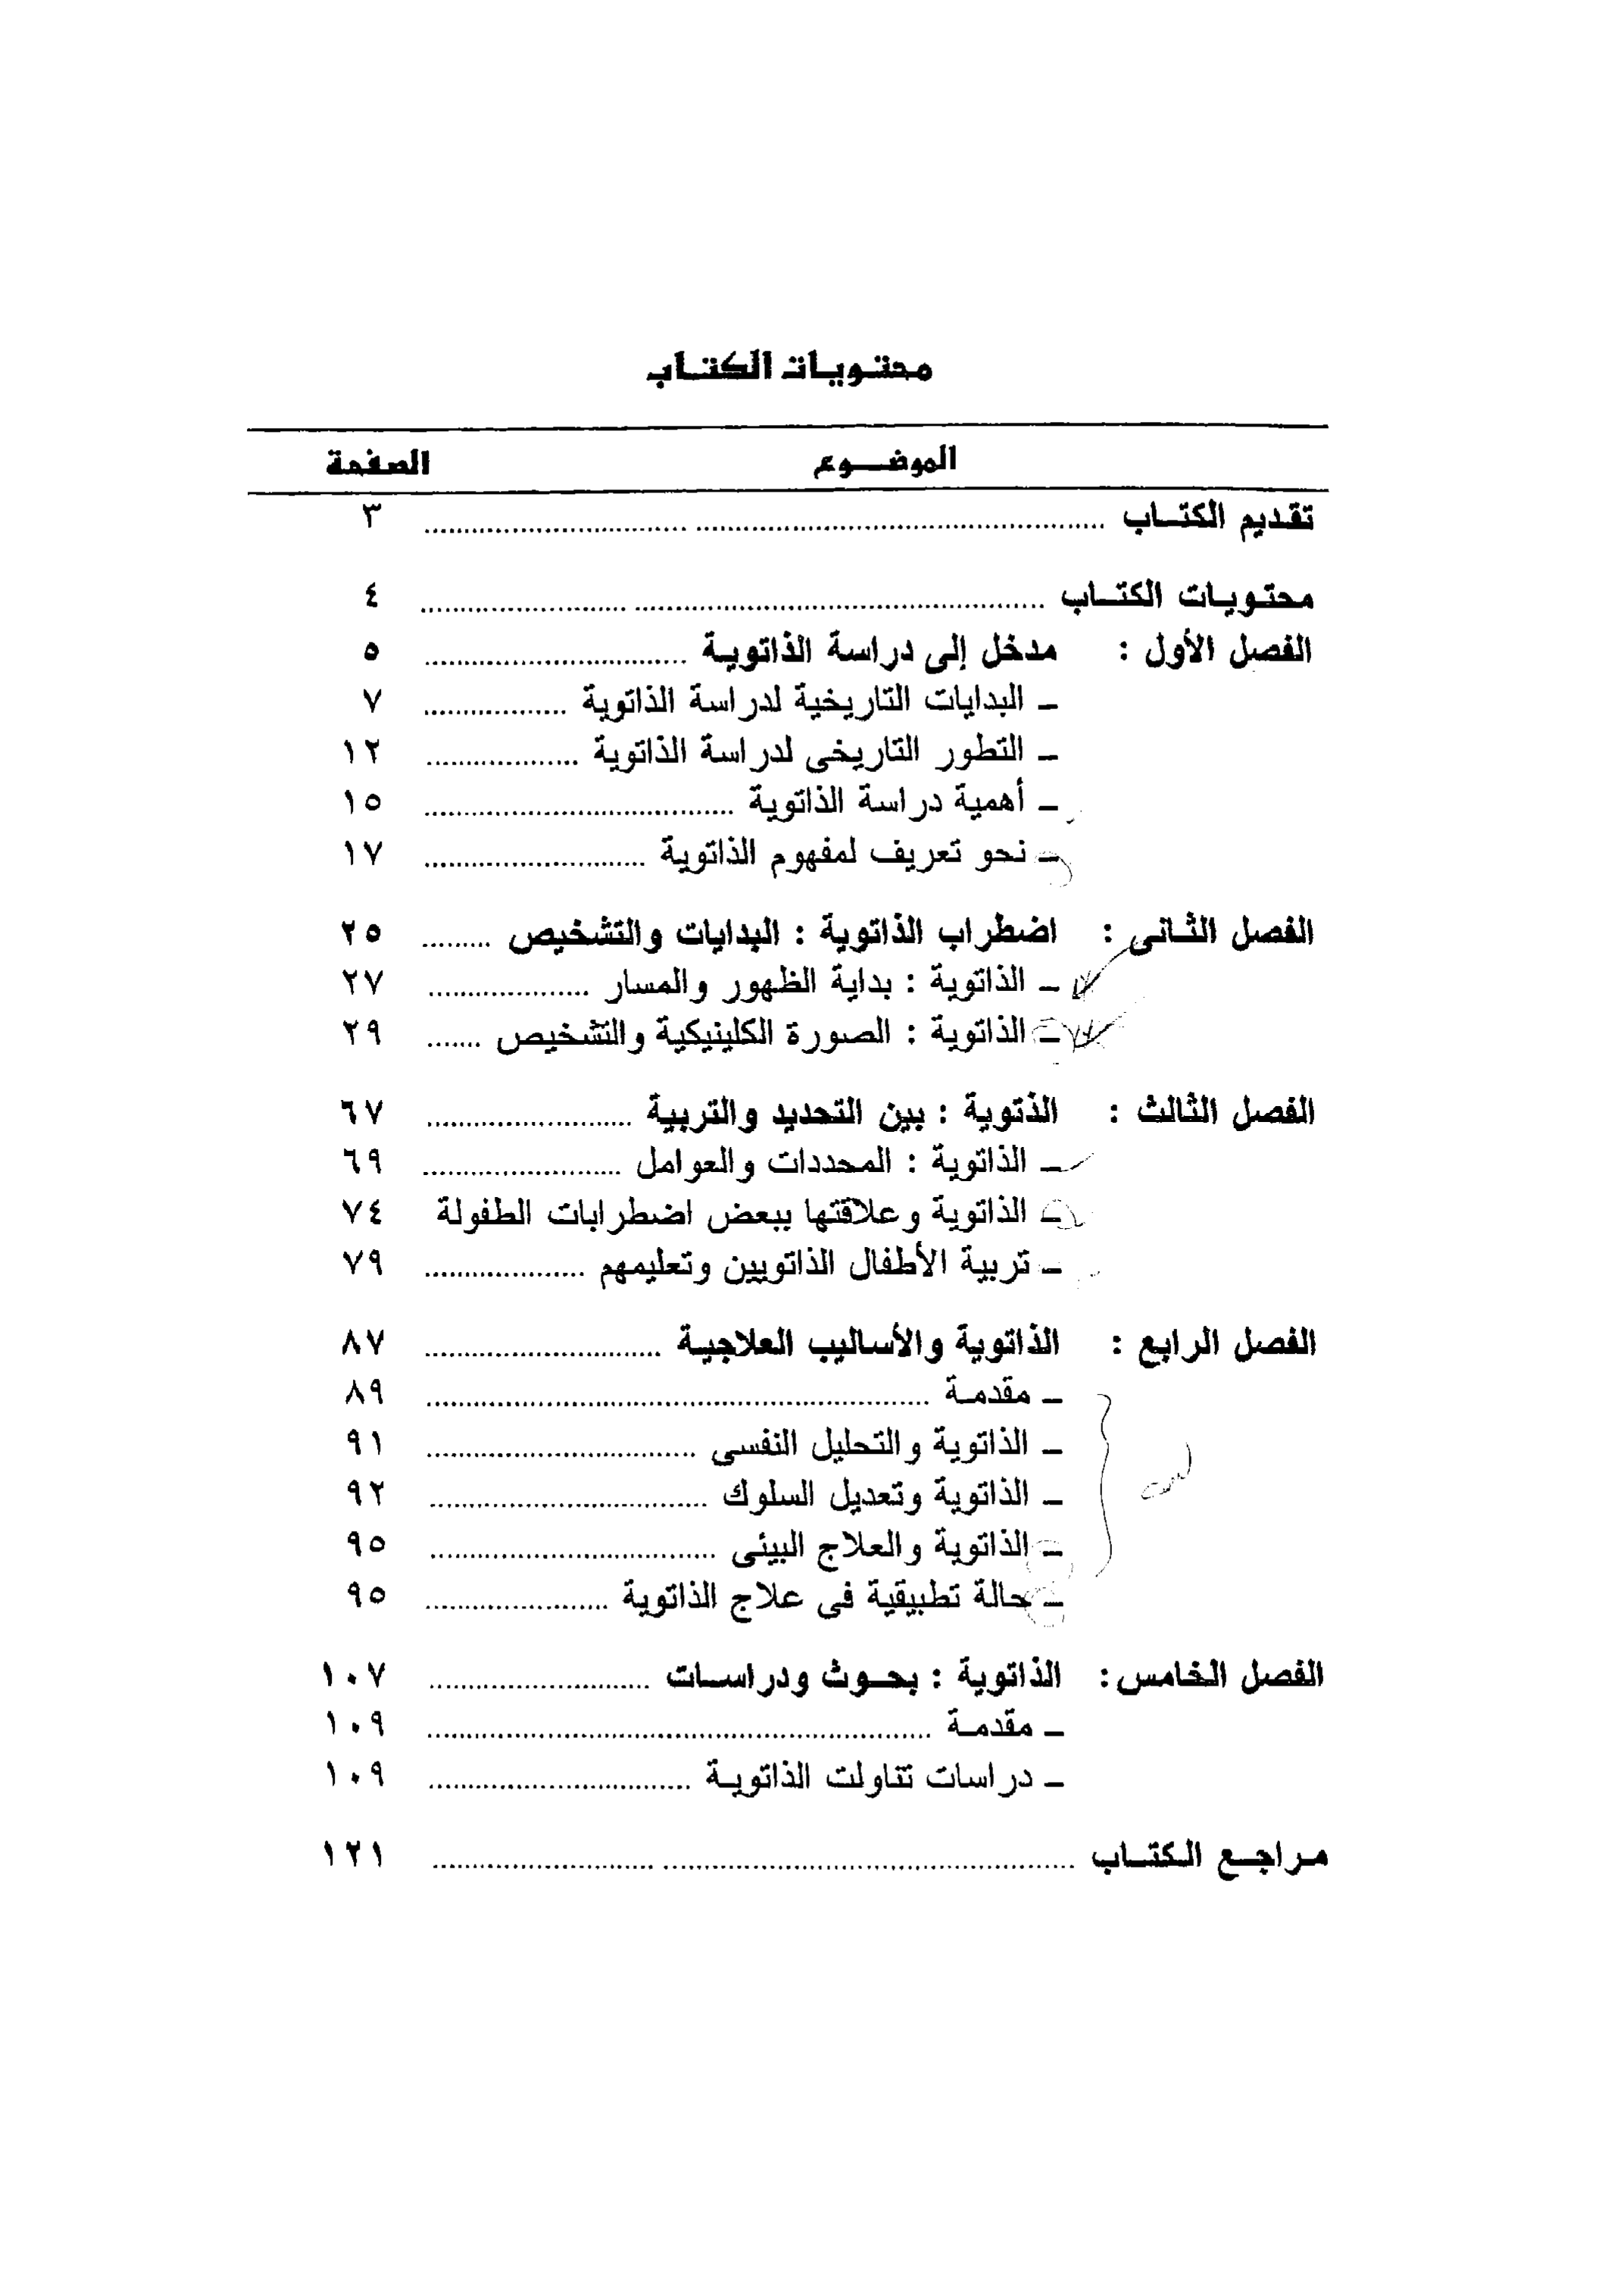 محتويات الكتاب
الموضوع الصفحة
تقديم الكتاب ........................ ٣
محتويات الكتاب ........................ ٤
الفصل الأول : مدخل إلى دراسة الذاتوية ........................ ٥
ـ البدايات التاريخية لدراسة الذاتوية ........................ ٧
ـ التطور التاريخى لدراسة الذاتوية ........................ ١٢
ـ أهمية دراسة الذاتوية ........................ ١٥
ـ نحو تعريف لمفهوم الذاتوية ........................ ١٧
الفصل الثانى : اضطراب الذاتوية : البدايات والتشخيص ......... ٢٥
ـ الذاتوية : بداية الظهور والمسار ........................ ٢٧
ـ الذاتوية : الصورة الكلينيكية والتشخيص ....... ٢٩
الفصل الثالث : الذتوية : بين التحديد والتربية ........................ ٦٧
ـ الذاتوية : المحددات والعوامل ........................ ٦٩
ـ الذاتوية وعلاقتها ببعض اضطرابات الطفولة ٧٤
ـ تربية الأطفال الذاتويين وتعليمهم ........................ ٧٩
الفصل الرابع : الذاتوية والأساليب العلاجية ........................ ٨٧
ـ مقدمة ........................ ٨٩
ـ الذاتوية والتحليل النفسى ........................ ٩١
ـ الذاتوية وتعديل السلوك ........................ ٩٢
ـ الذاتوية والعلاج البيئى ........................ ٩٥
ـ حالة تطبيقية فى علاج الذاتوية ........................ ٩٥
الفصل الخامس : الذاتوية : بحوث ودراسات ........................ ١٠٧
ـ مقدمة ........................ ١٠٩
ـ دراسات تناولت الذاتوية ........................ ١٠٩
مراجع الكتاب ........................ ١٢١